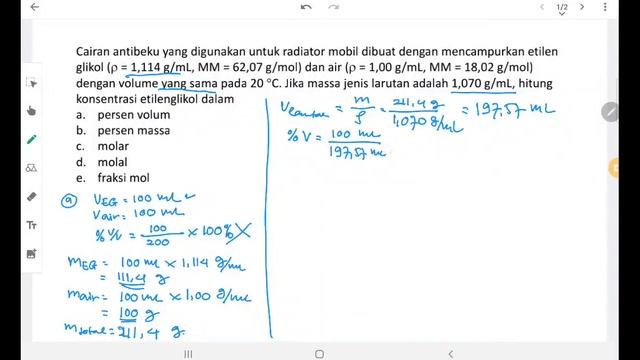 1/2
Cairan antibeku yang digunakan untuk radiator mobil dibuat dengan mencampurkan etilen
glikol (ρ = 1,114 g/mL, MM = 62,07 g/mol) dan air (ρ = 1,00 g/mL, MM = 18,02 g/mol)
dengan volume yang sama pada 20 °C. Jika massa jenis larutan adalah 1,070 g/mL, hitung
konsentrasi etilenglikol dalam
a. persen volum
b. persen massa
c. molar
d. molal
e. fraksi mol
a V EG = 100 mL
V air = 100 mL
% V/V = 100/200 × 100%
m EG = 100 mL × 1,114 g/mL
= 111,4 g
m air = 100 mL × 1,00 g/mL
= 100 g
m total = 211,4 g
V larutan = m/ρ = 211,4 g / 1,070 g/mL = 197,57 mL
% V = 100 mL / 197,57 mL
Tт